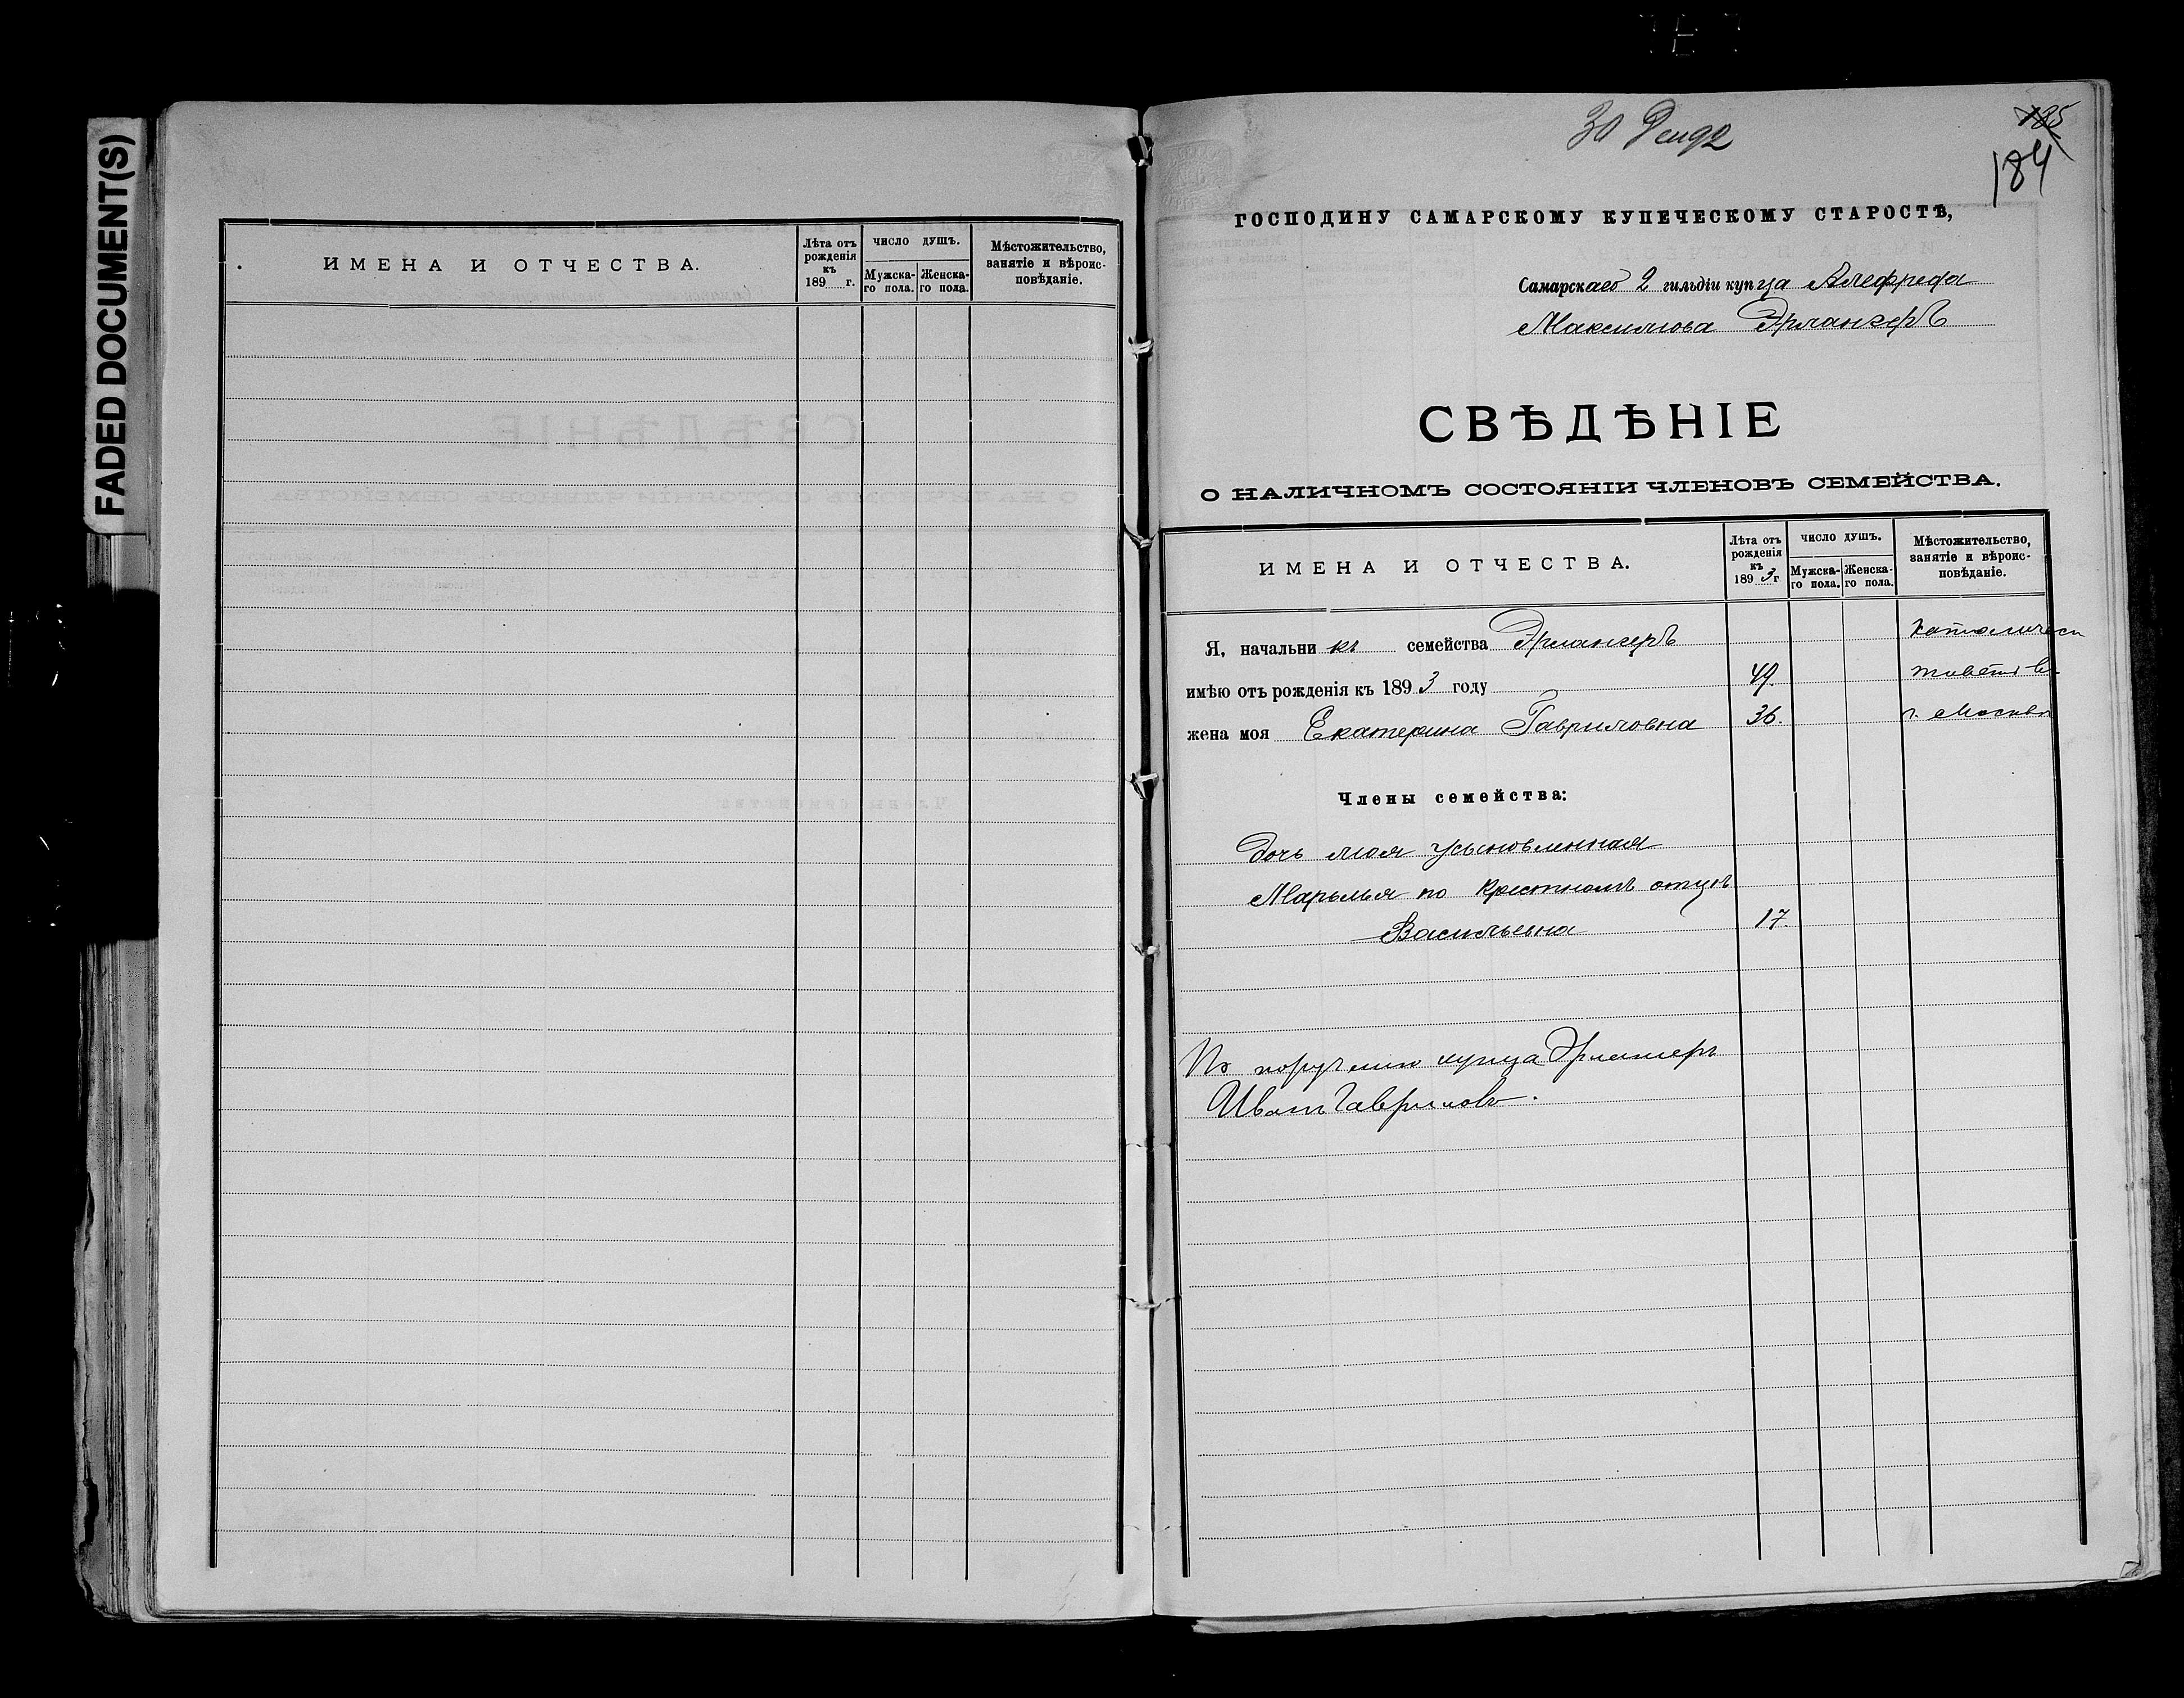 FADED DOCUMENT(S)
ИМЕНА И ОТЧЕСТВА.
Лѣта отъ рожденія къ 189 г.
ЧИСЛО ДУШЪ.
Мужска-го пола.
Женска-го пола.
Мѣстожительство, занятіе и вѣроис-повѣданіе.
30 Дек 92
185
184
ГОСПОДИНУ САМАРСКОМУ КУПЕЧЕСКОМУ СТАРОСТѢ,
Самарскаго 2 гильдіи купца Альфреда
Максимова Эрлангеръ
СВѢДѢНІЕ
О НАЛИЧНОМЪ СОСТОЯНІИ ЧЛЕНОВЪ СЕМЕЙСТВА.
ИМЕНА И ОТЧЕСТВА.
Лѣта отъ рожденія къ 1893 г
ЧИСЛО ДУШЪ.
Мужска-го пола.
Женска-го пола.
Мѣстожительство, занятіе и вѣроис-повѣданіе.
Я, начальникъ семейства Эрлангеръ
имѣю отъ рожденія къ 1893 году 49.
жена моя Екатерина Гавриловна 36. г. Москва
Члены семейства:
Дочь моя усыновленная
Марья по крестномъ отцѣ
Васильевна 17.
По порученію купца Эрлангеръ
Иванъ Гавриловъ.